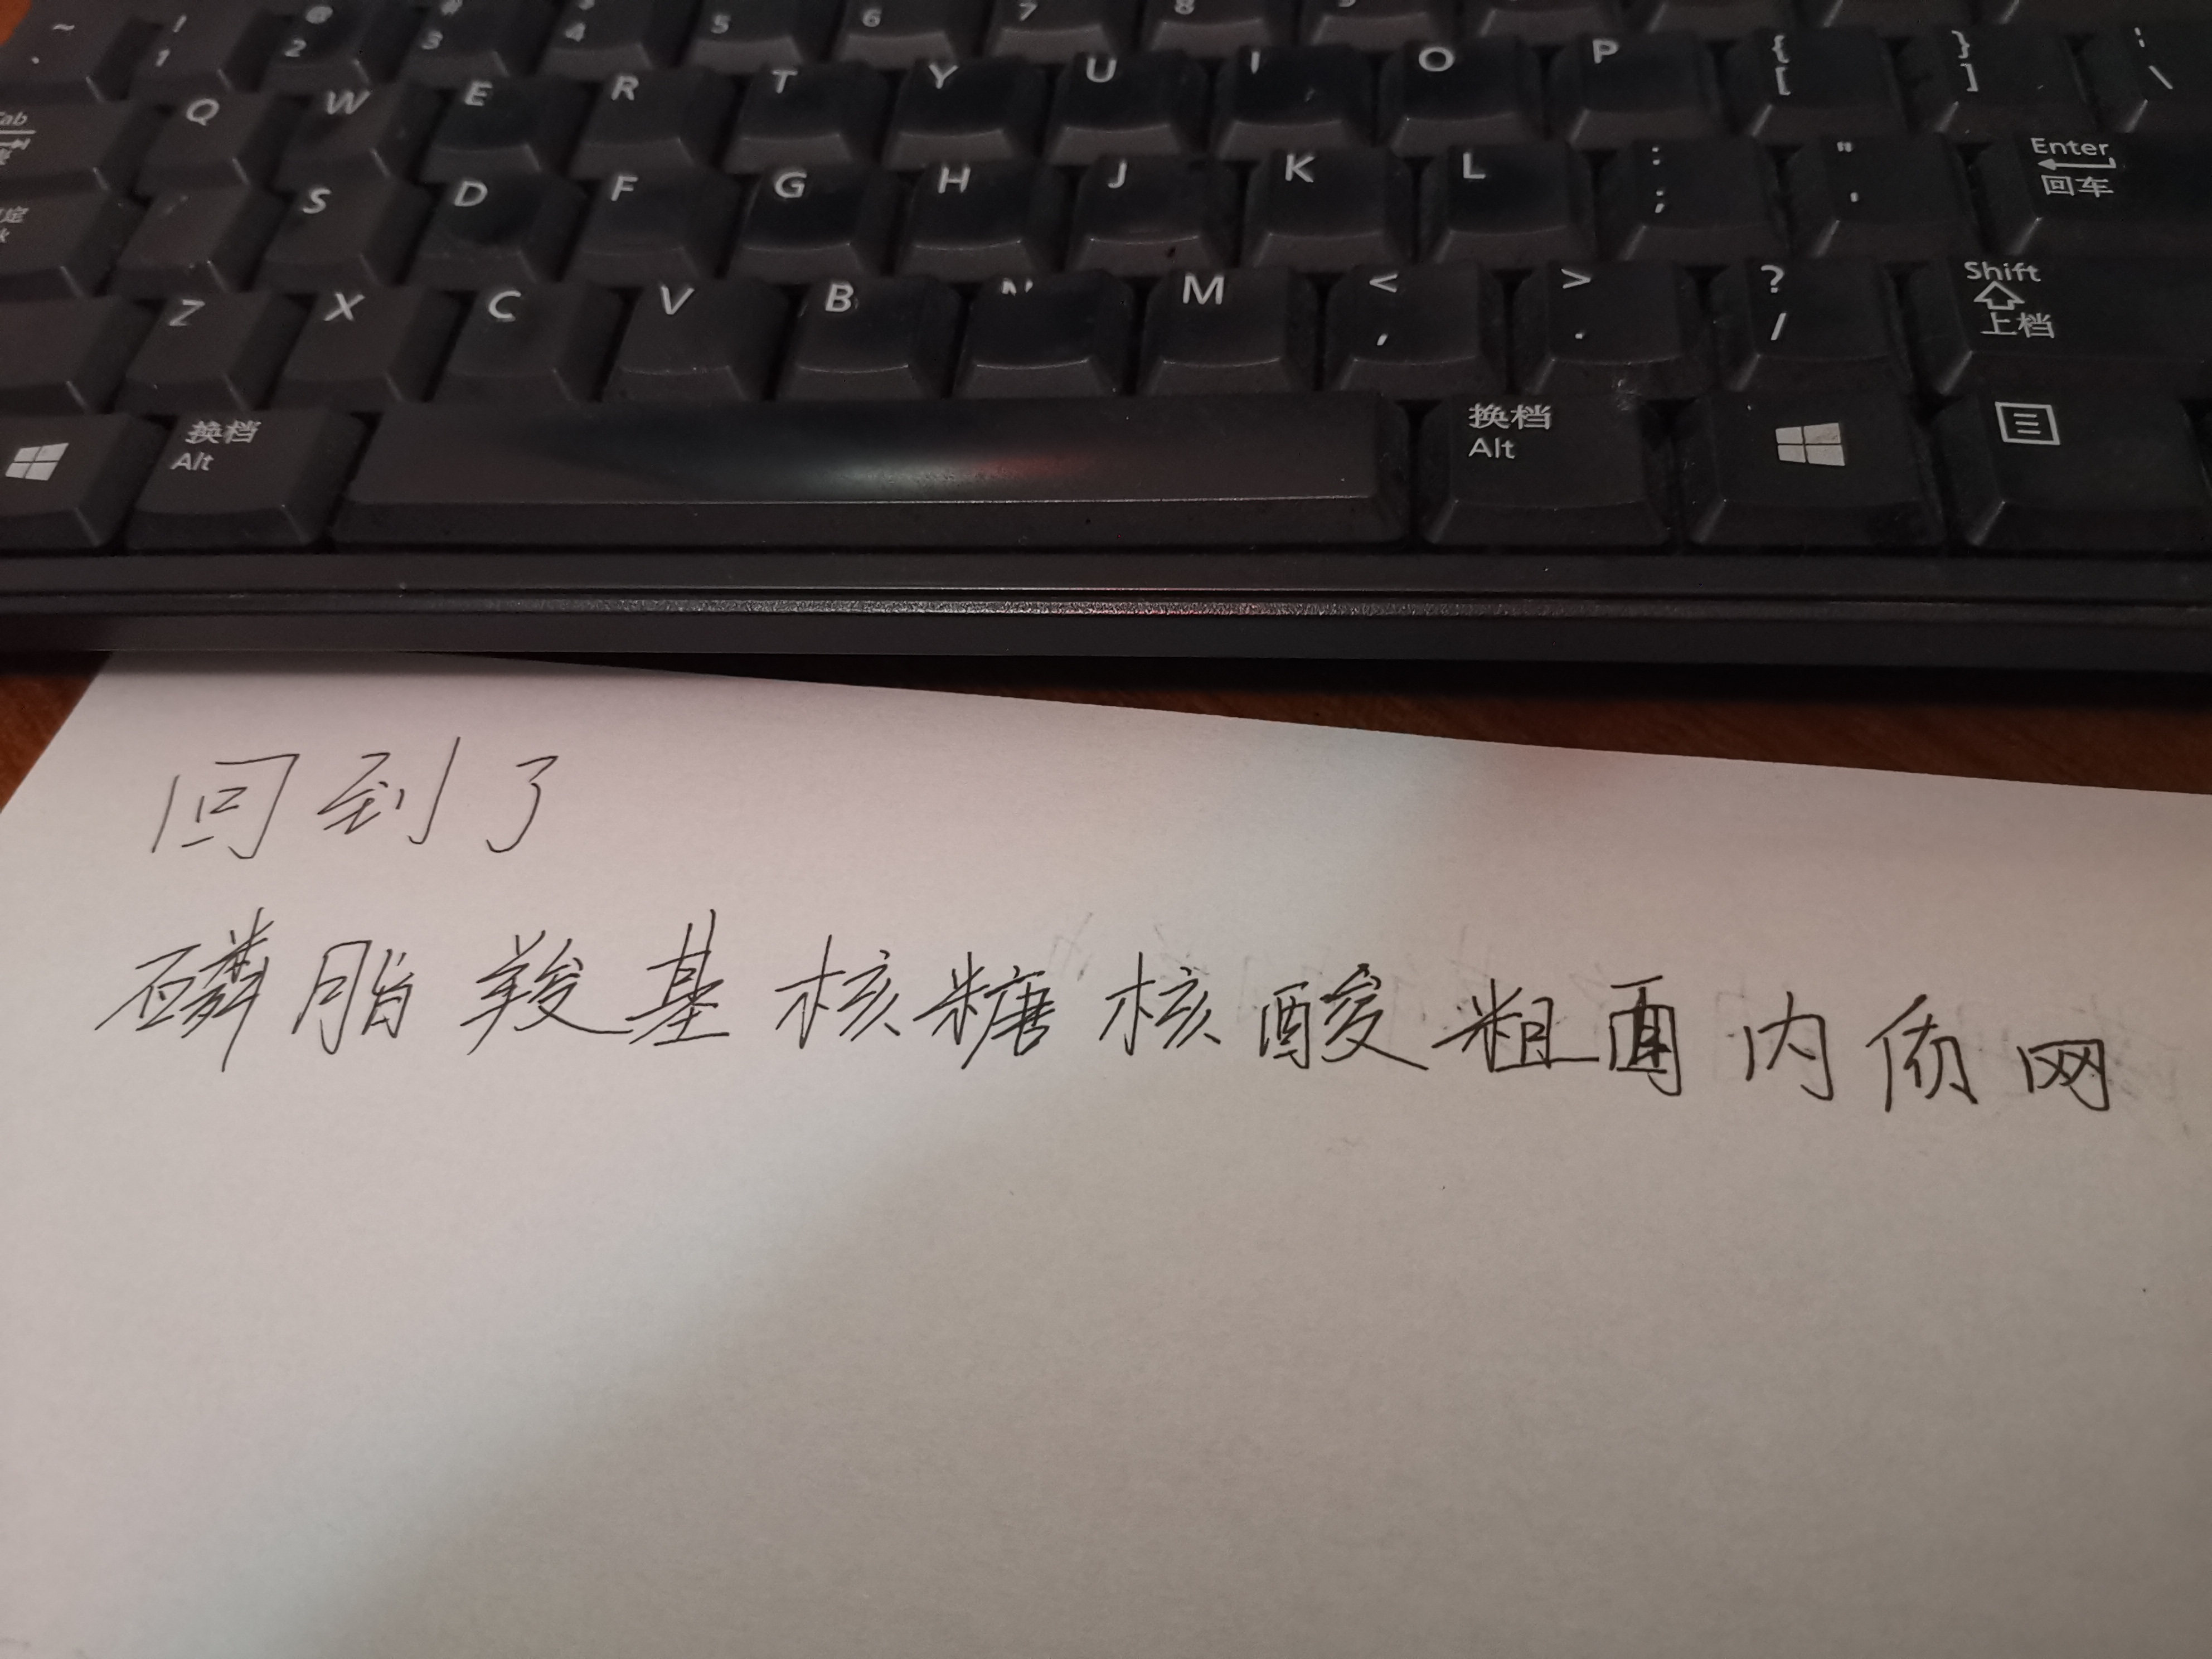 ~ ! @ # $
` 1 2 3 4 5 6 7 8
Tab Q W E R T Y U I O P { [ } ] \
S D F G H J K L : ; " ' Enter 回车
Z X C V B N M < , > . ? / Shift 上档
换档 Alt 换档 Alt
回到了
磷脂羧基核糖核酸粗面内质网